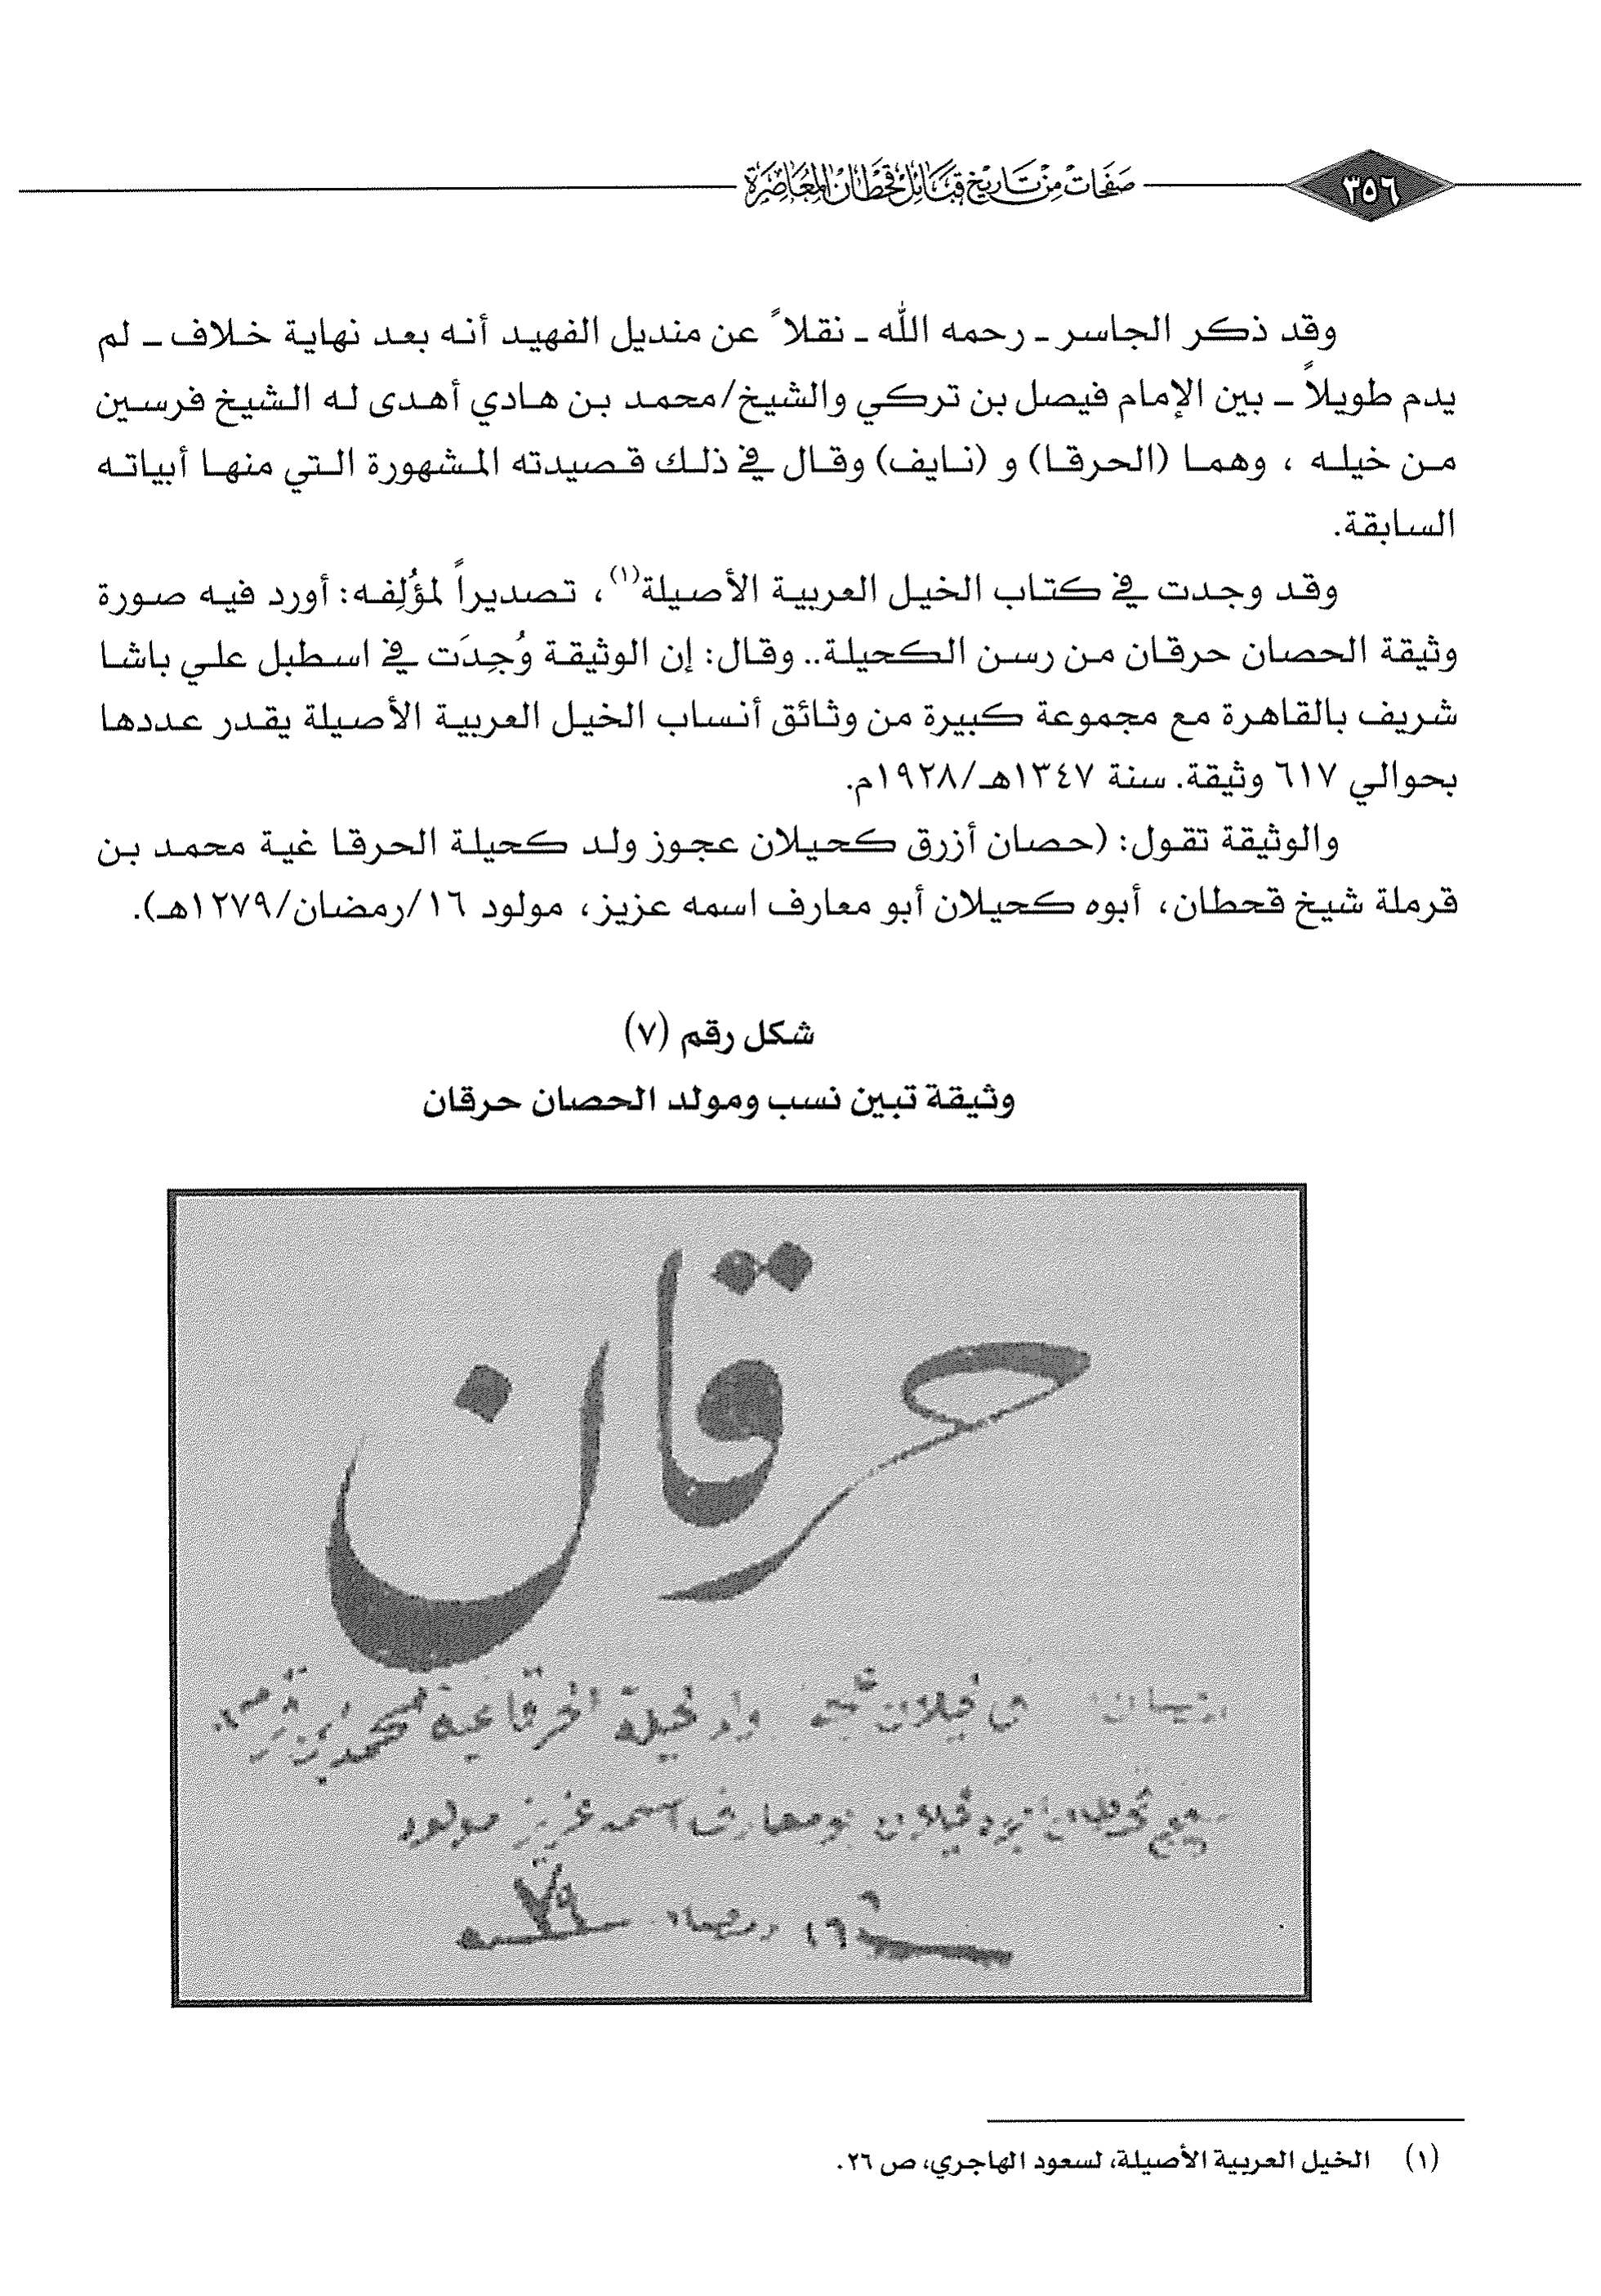 ٣٥٦
صفحات من تاريخ قبائل قحطان المعاصرة
وقد ذكر الجاسر ـ رحمه الله ـ نقلاً عن منديل الفهيد أنه بعد نهاية خلاف ـ لم
يدم طويلاً ـ بين الإمام فيصل بن تركي والشيخ/محمد بن هادي أهدى له الشيخ فرسين
من خيله ، وهما (الحرقا) و (نايف) وقال في ذلك قصيدته المشهورة التي منها أبياته
السابقة.
وقد وجدت في كتاب الخيل العربية الأصيلة(١)، تصديراً لمؤُلِفه: أورد فيه صورة
وثيقة الحصان حرقان من رسن الكحيلة.. وقال: إن الوثيقة وُجِدَت في اسطبل علي باشا
شريف بالقاهرة مع مجموعة كبيرة من وثائق أنساب الخيل العربية الأصيلة يقدر عددها
بحوالي ٦١٧ وثيقة. سنة ١٣٤٧هـ/١٩٢٨م.
والوثيقة تقول: (حصان أزرق كحيلان عجوز ولد كحيلة الحرقا غية محمد بن
قرملة شيخ قحطان، أبوه كحيلان أبو معارف اسمه عزيز، مولود ١٦/رمضان/١٢٧٩هـ).
شكل رقم (٧)
وثيقة تبين نسب ومولد الحصان حرقان
حرقان
ولد كحيلة الحرقا غية محمد بن
معارف اسمه عزيز مولود
١٦ رمضان ٧٩
(١) الخيل العربية الأصيلة، لسعود الهاجري، ص ٢٦.